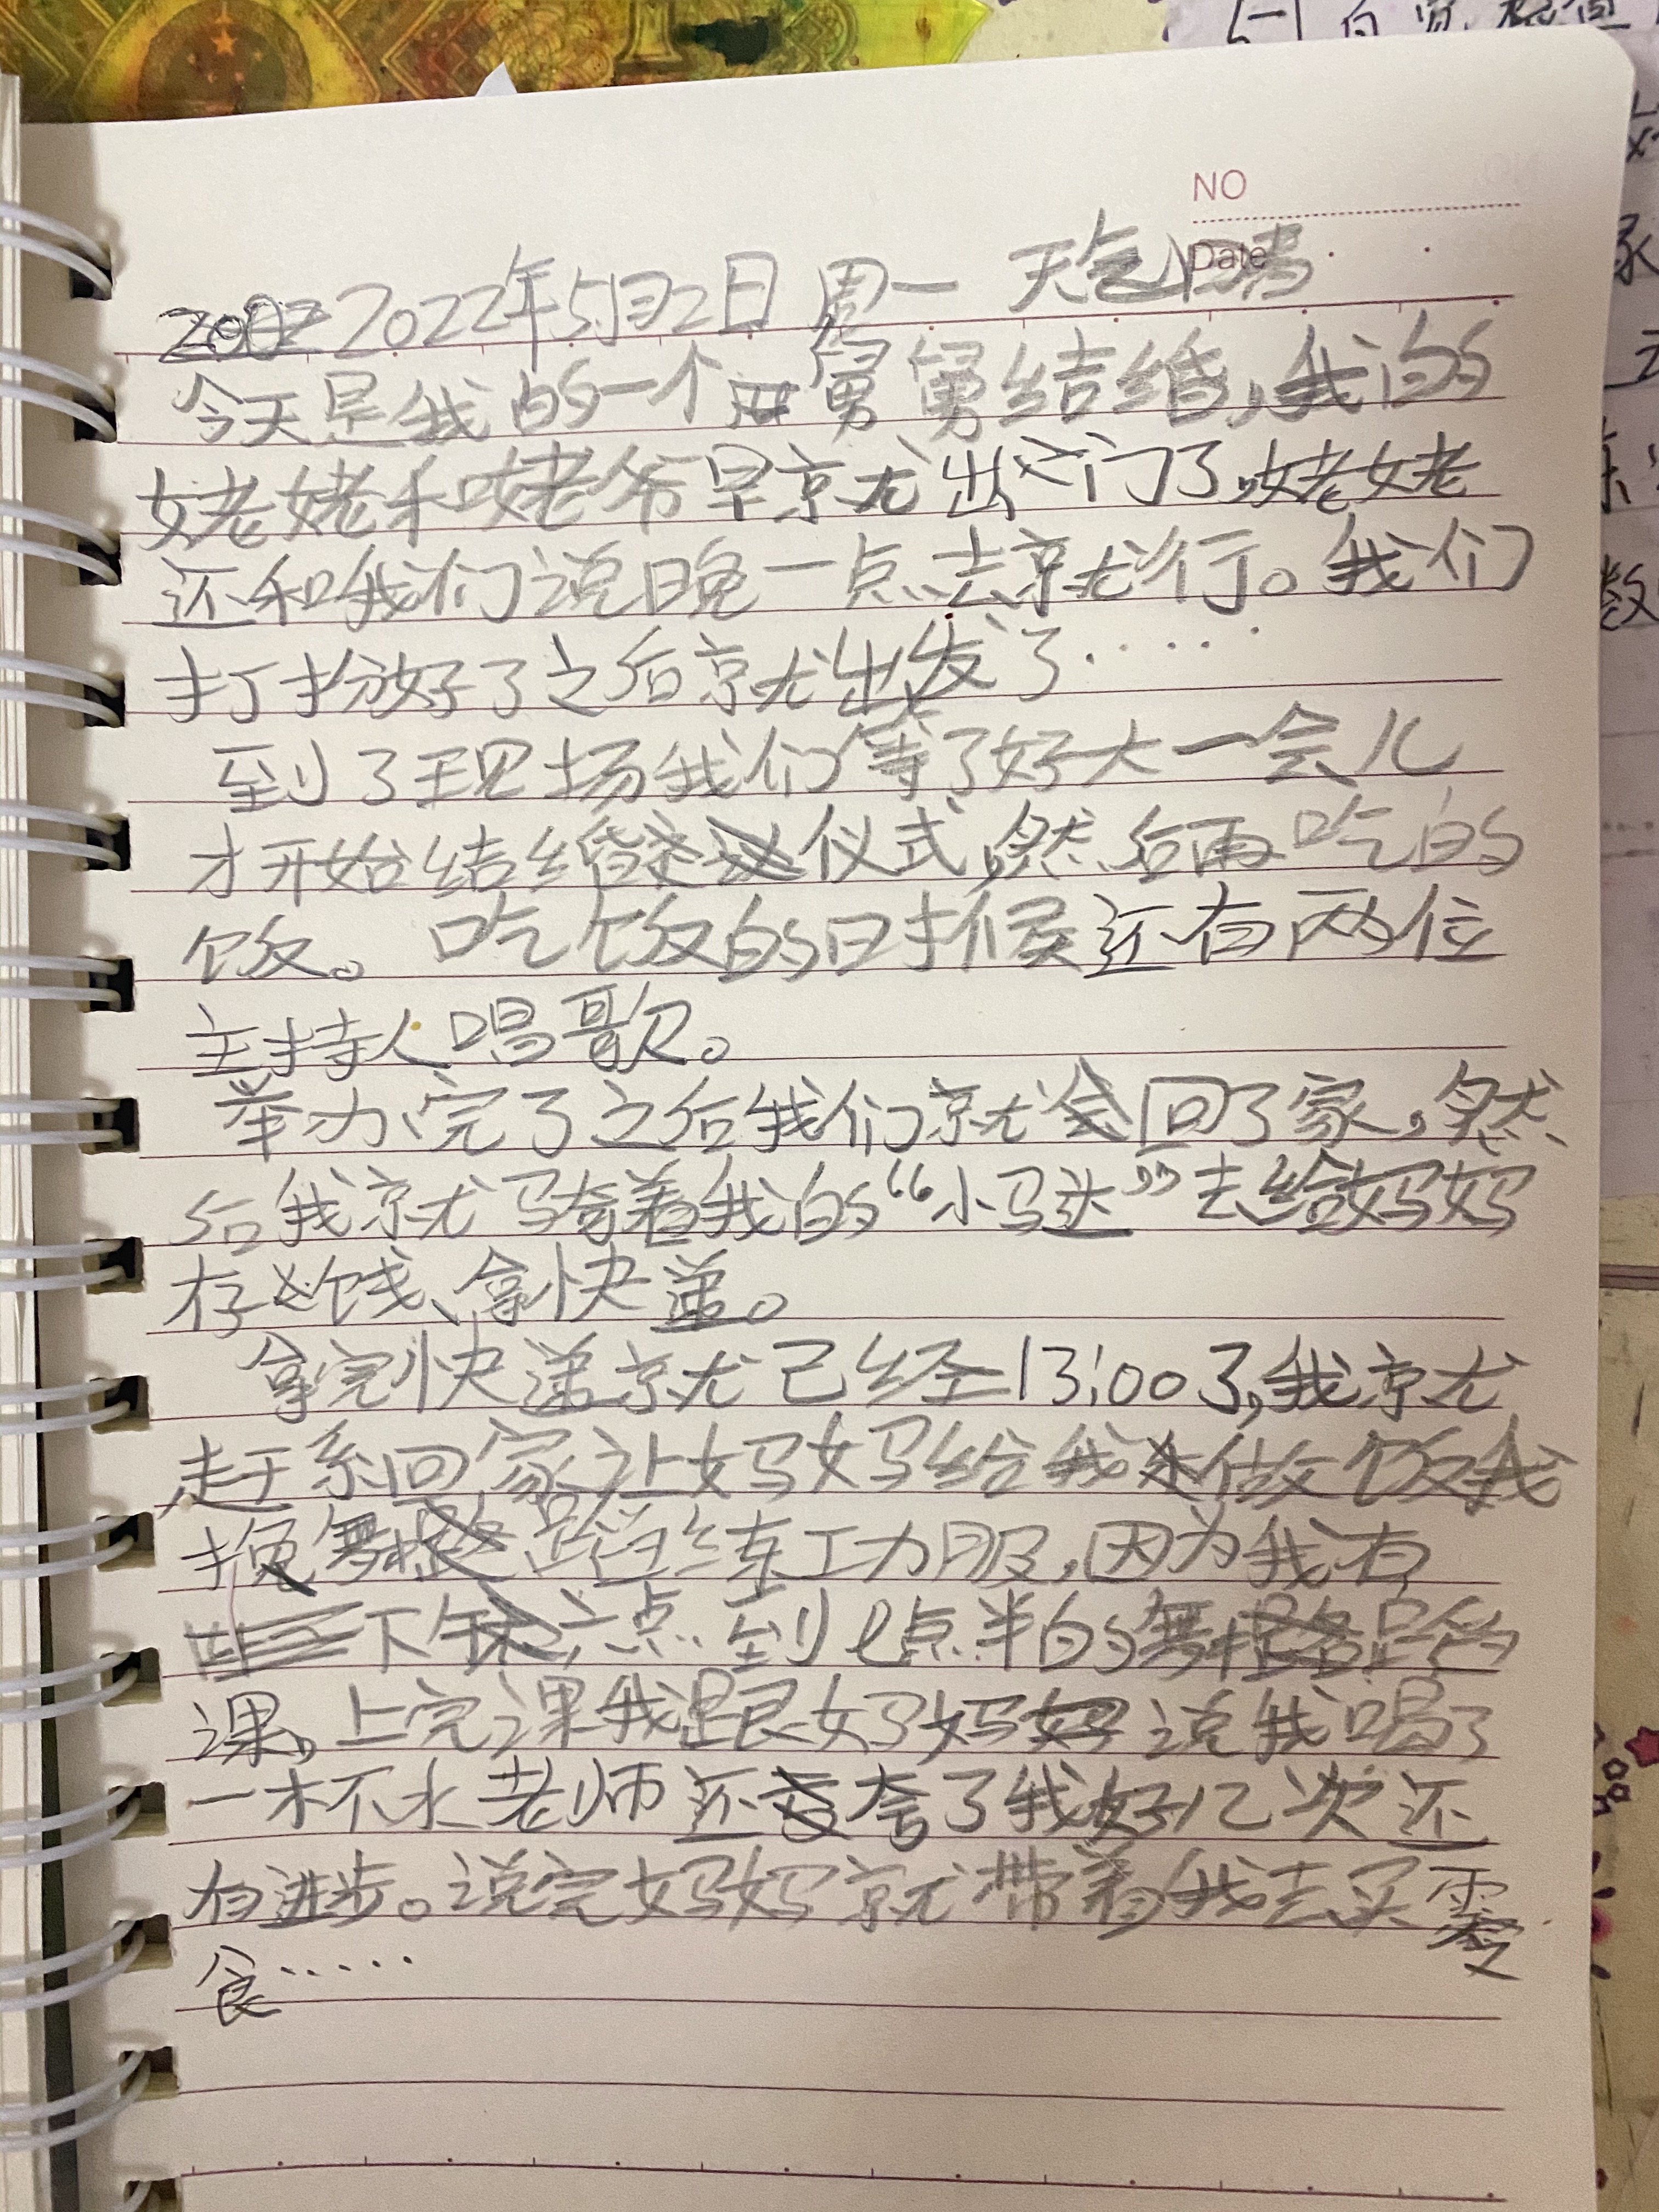 NO
Date
2022年5月2日 周一 天气:晴
今天是我的一个舅舅结婚,我的
姥姥和姥爷早就出门了,姥姥
还和我们说晚一点去就行。我们
打扮好了之后就出发了……
到了现场我们等了好大一会儿
才开始结婚仪式,然后再吃的
饭。吃饭的时候还有两位
主持人唱歌。
举办完了之后我们就回了家,然
后我就骑着我的“小马达”去给妈妈
存钱、拿快递。
拿完快递就已经13:00了,我就
赶紧回家让妈妈给我做饭我
换舞蹈练功服,因为我有
下午六点到七点半的舞蹈
课。上完课我跟妈妈说我喝了
一杯水老师还夸了我好几次还
有进步。说完妈妈就带着我去买零
食……